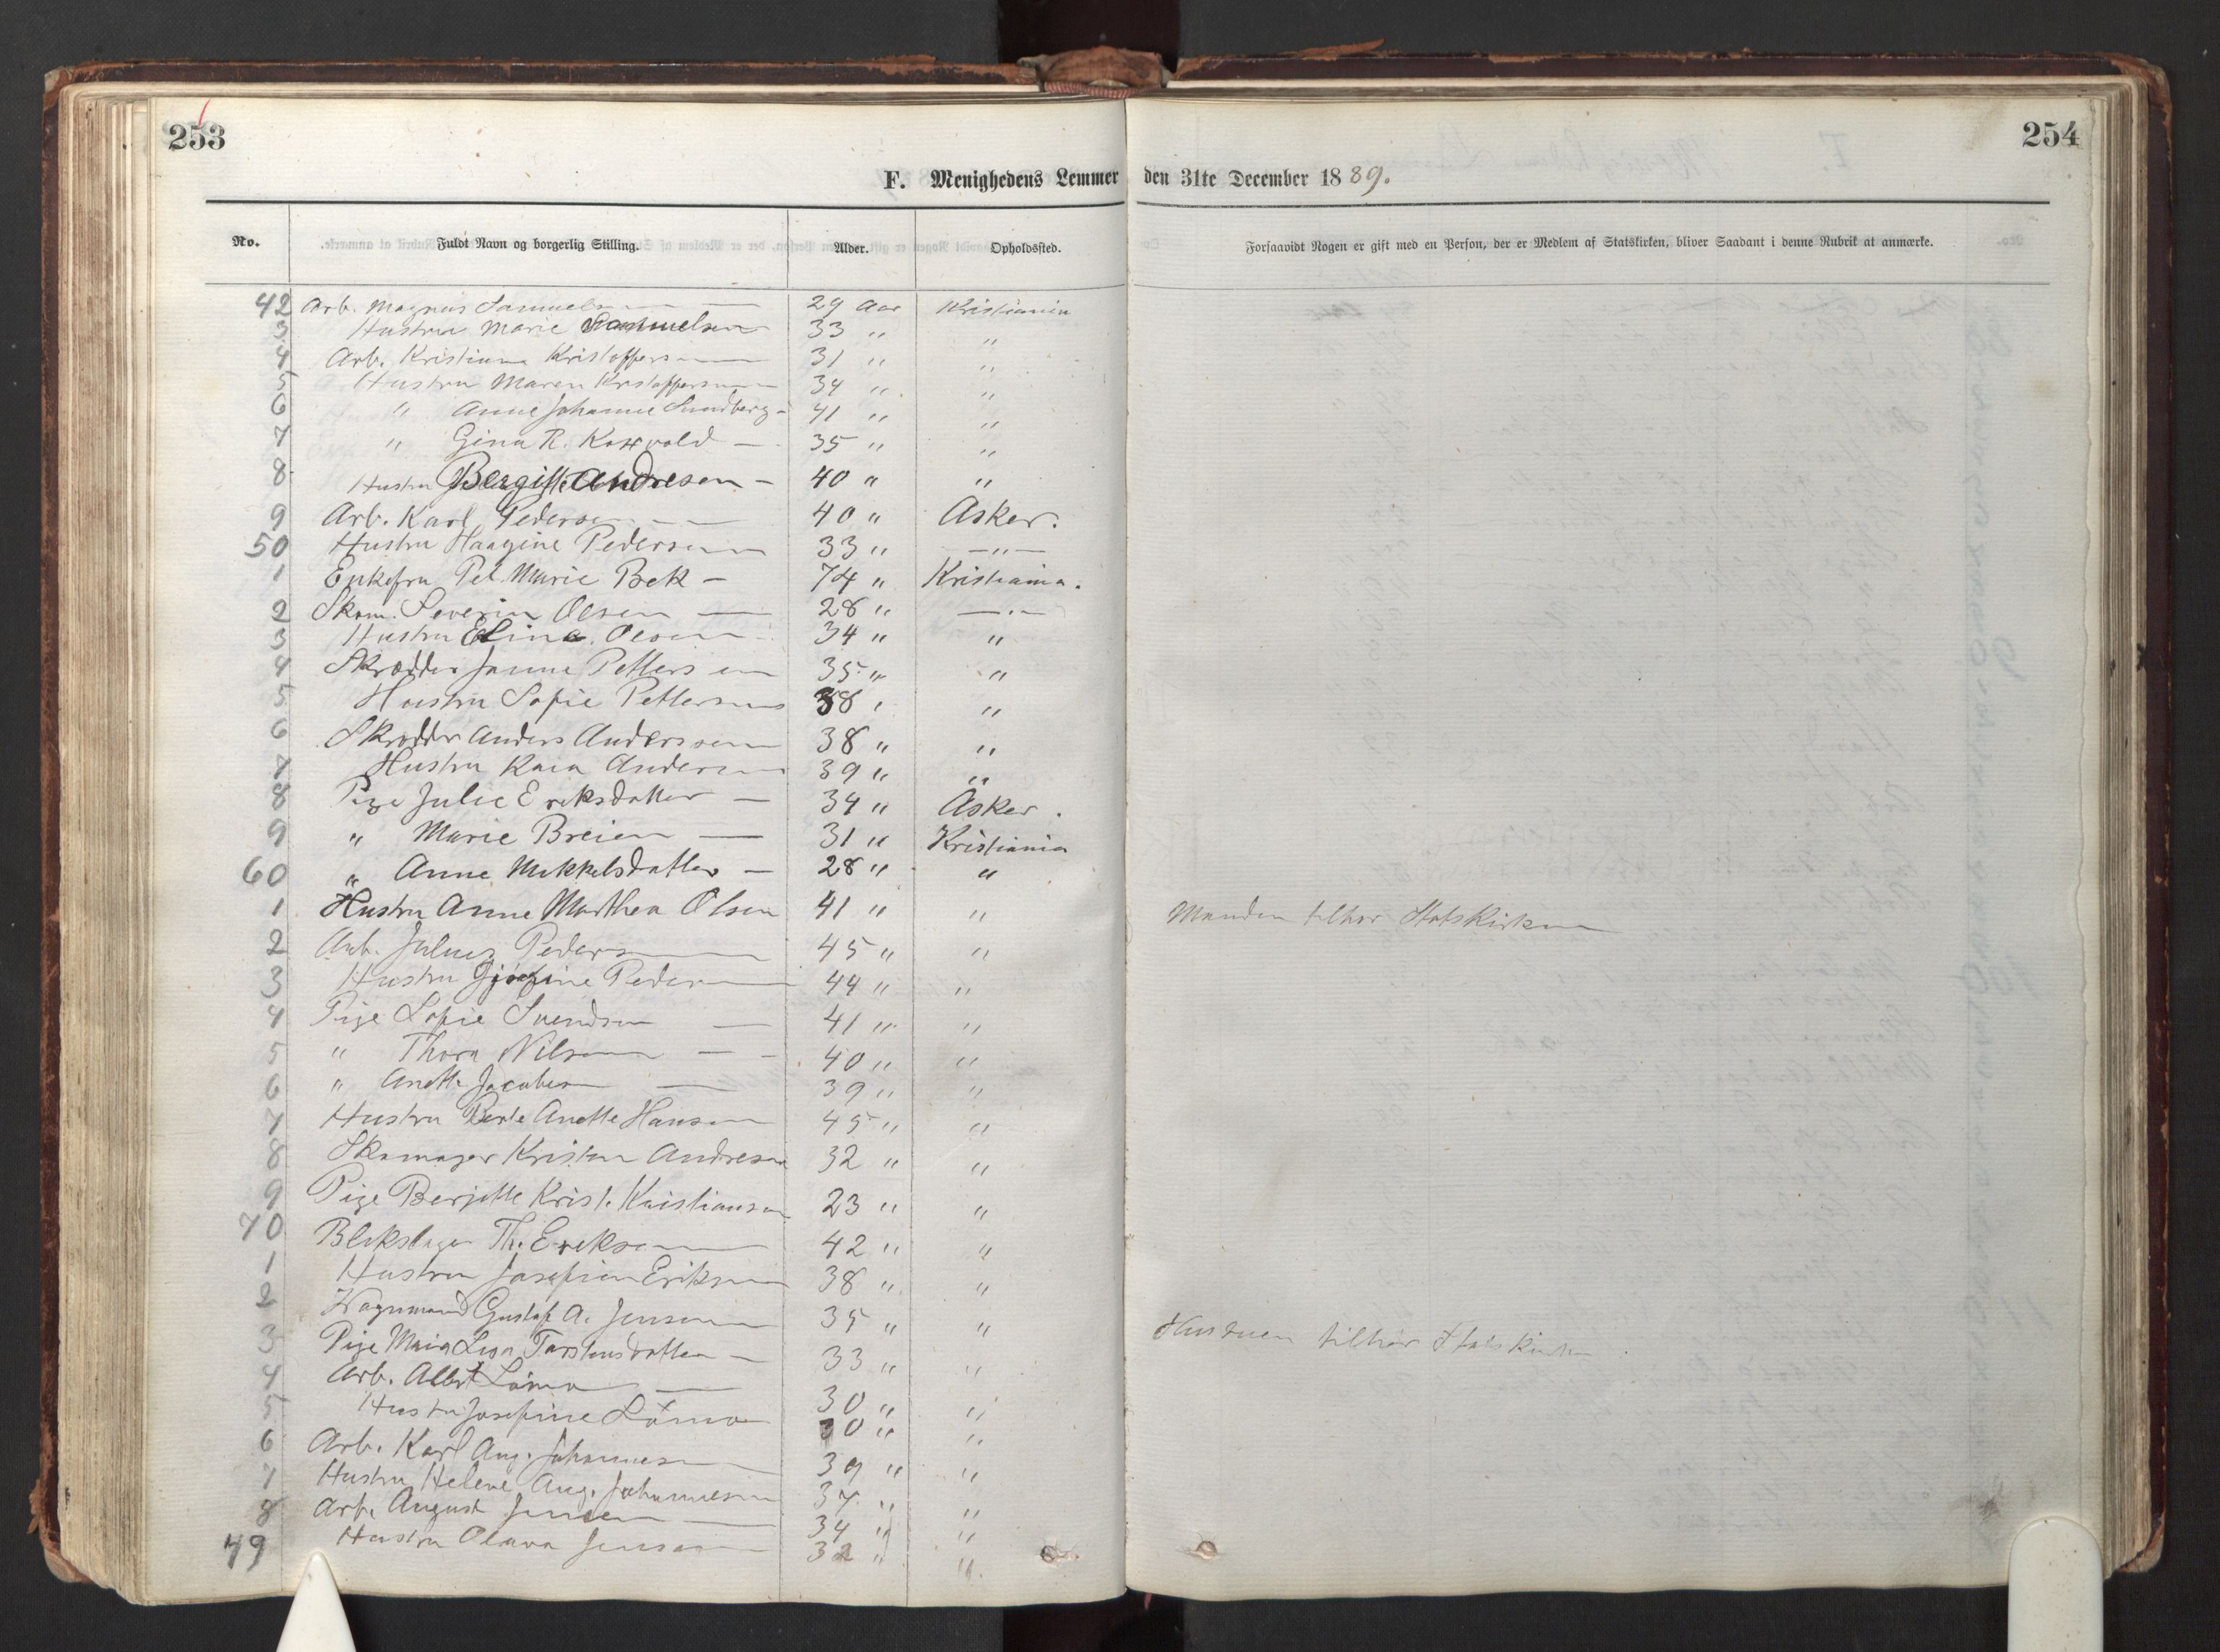 253
254
F. Menighedens Lemmer den 31te December 1889.
No. Fuldt Navn og borgerlig Stilling. Alder. Opholdssted. Forsaavidt Nogen er gift med en Person, der er Medlem af Statskirken, bliver Saadant i denne Rubrik at anmærke.
42 Arb. Magnus Samuelsen 29 Aar Kristiania
3 Hustru Marie Sammuelsen 33 " "
4 Arb. Kristian Kristoffersen 31 " "
5 Hustru Maren Kristoffersen 34 " "
6 " Anne Johanne Sundberg - 41 " "
7 " Gina R. 35 " "
8 Hustru Bergitte Andresen - 40 " "
9 Arb. Karl Pedersen 40 " Asker.
50 Hustru Haagine Pedersen 33 " - " -
1 Enkefru Pet. Marie Bek - 74 " Kristiania.
2 Skom. Severin Olsen 28 " - " -
3 Hustru Elina Olsen 34 " "
4 Skrædder Janne Pettersen 35 " "
5 Hustru Sofie Pettersen 38 " "
6 Skrædder Anders Anderssen 38 " "
7 Hustru Kaia Andersen 39 " "
8 Pige Julie Eriksdatter - 34 " Asker.
9 " Marie Breien - 31 " Kristiania
60 " Anne Mikkelsdatter - 28 " "
1 Hustru Anne Marthea Olsen 41 " " Manden tilhør Statskirken
2 Arb. Julius Pedersen 45 " "
3 Hustru Pedersen 44 " "
4 Pige Sofie Svendsen 41 " "
5 " Thora Nilsen - - 40 " "
6 " Anette Jacobsen - 39 " "
7 Hustru Berte Anette Hansen 45 " "
8 Skomager Kristen Andresen 32 " "
9 Pige Berjitte Krist. Kristiansen 23 " "
70 Blikslager Th. Eriksen 42 " "
1 Hustru Josefine Eriksen 38 " "
2 Vagnmand Gustaf A. Jensen 35 " " Hustruen tilhør Statskirken.
3 Pige Maia Lisa Torstensdatter - 33 " "
4 Arb. Albert 30 " "
5 Hustru Josefine 30 " "
6 Arb. Karl Aug. Johannesen 39 " "
7 Hustru Helene Aug. Johannesen 37 " "
8 Arb. August Jensen 34 " "
79 Hustru Olava Jensen 32 " "